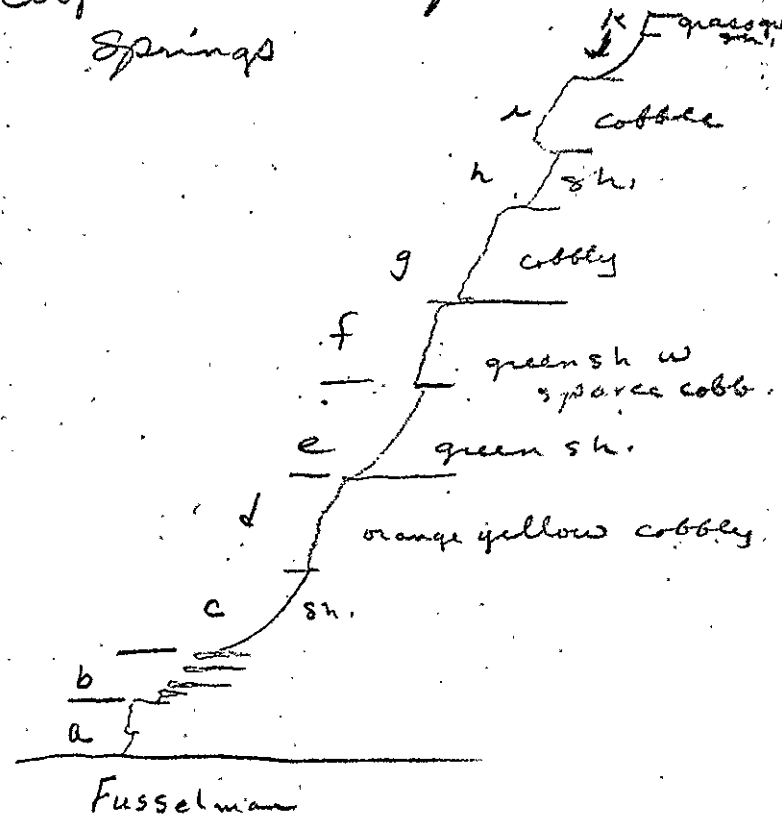 Springs
k
i cobbly
h sh.
g cobbly
f green sh w
sparce cobb.
e green sh.
d orange yellow cobbly
c sh.
b
a
Fusselman